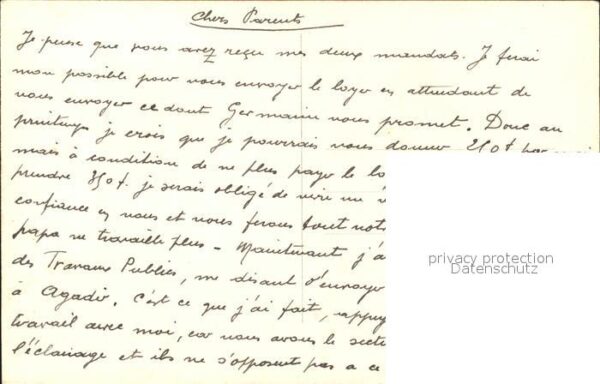 Chers Parents
Je pense que vous avez reçu mes deux mandats. Je ferai
mon possible pour vous envoyer le loyer en attendant de
vous envoyer ce dont Germain vous promet. Donc au
printemps je crois que je pourrais vous donner 250f par
mais à condition de ne plus payer le lo
prendre 350f. je serais obligé de vivre un
confiance en nous et nous ferons tout not
papa ne travaille plus - Maintenant j'a
des Travaux Publics, me disant d'envoyer
à Agadir. C'est ce que j'ai fait, appuy
travail avec moi, car nous avons le secte
l'éclairage et ils ne s'opposent pas a ce
privacy protection
Datenschutz